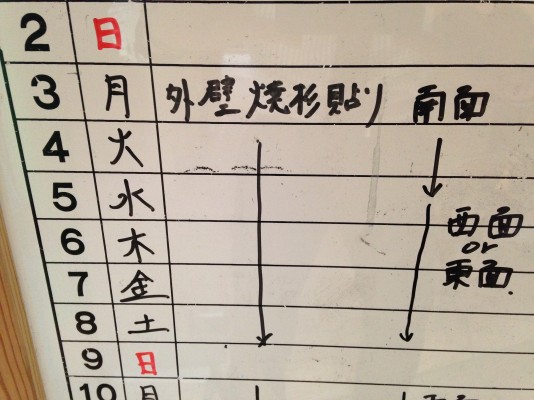 2 日
3 月 外壁焼杉貼り 南面
4 火
5 水 西面
6 木 or
7 金 東面
8 土
9 日
10 月